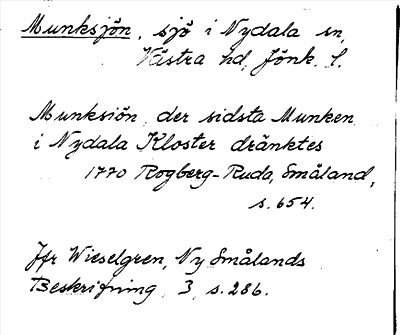 Munksjön, sjö i Nydala sn,
Västra hd, Jönk. l.
Munksiön, der sidsta Munken
i Nydala Kloster dränktes
1770 Rogberg-Ruda, Småland,
s. 654.
Jfr Wieselgren, Ny Smålands
Beskrifning, 3, s. 286.